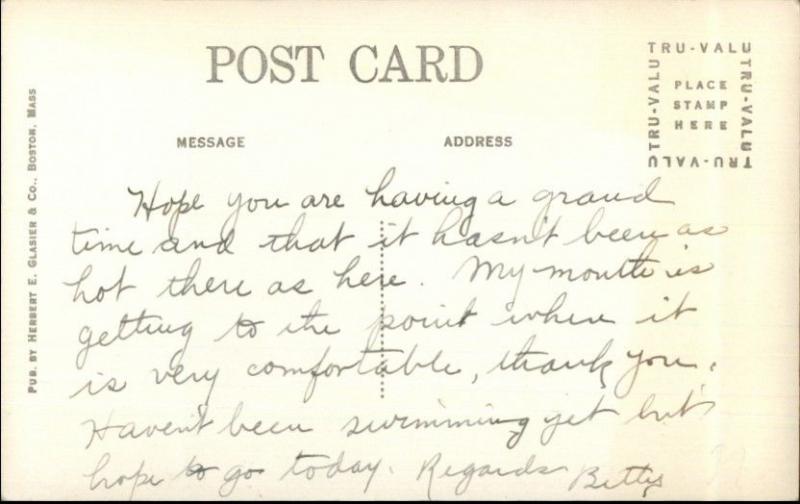 POST CARD
TRU-VALU
TRU-VALU
TRU-VALU
TRU-VALU
PLACE
STAMP
HERE
MESSAGE
ADDRESS
PUB. BY HERBERT E. GLASIER & CO., BOSTON, MASS
Hope you are having a grand
time and that it hasn't been as
hot there as here. My mouth is
getting to the point where it
is very comfortable, thank you.
Haven't been swimming yet but
hope to go today. Regards Betty